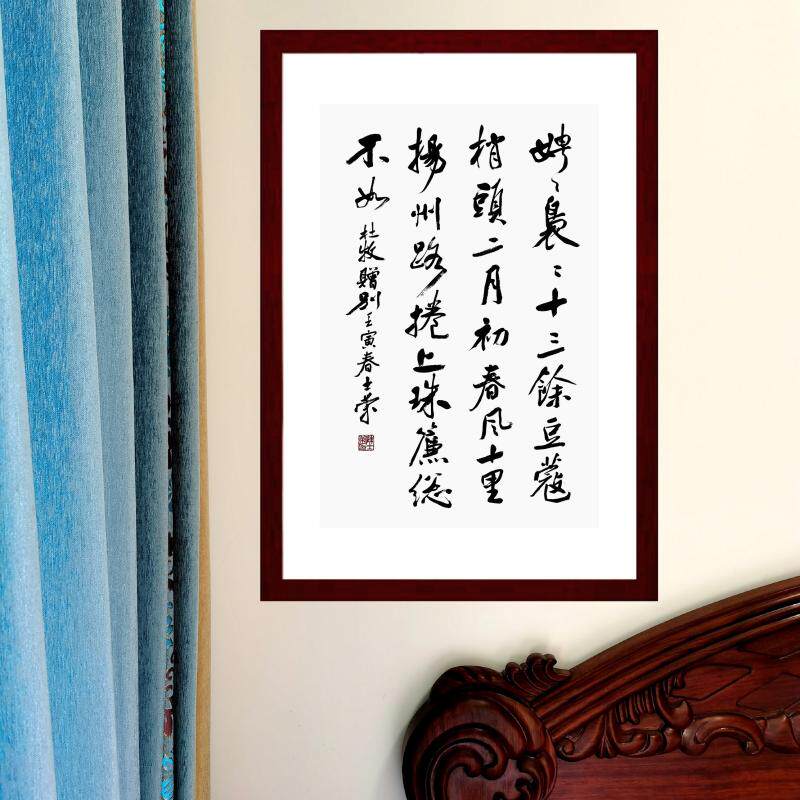 娉〻褭〻十三餘豆蔻
梢頭二月初春风十里
揚州路捲上珠簾総
不如 杜牧贈别壬寅春士榮